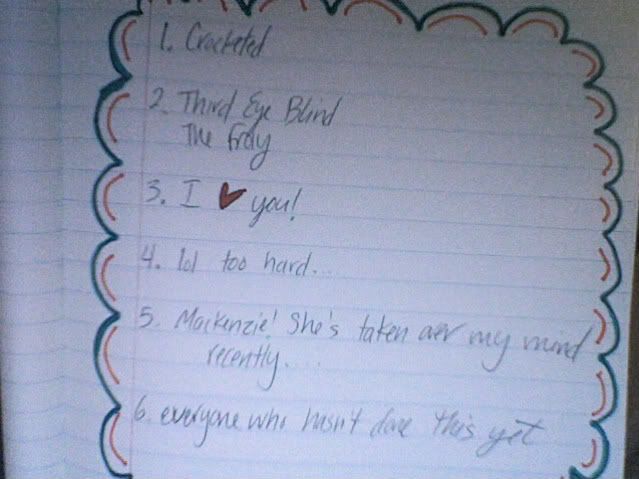 1. Crocheted
2. Third Eye Blind
The Fray
3. I ♥ you!
4. lol too hard...
5. Mackenzie! She's taken over my mind
recently....
6. everyone who hasn't done this yet